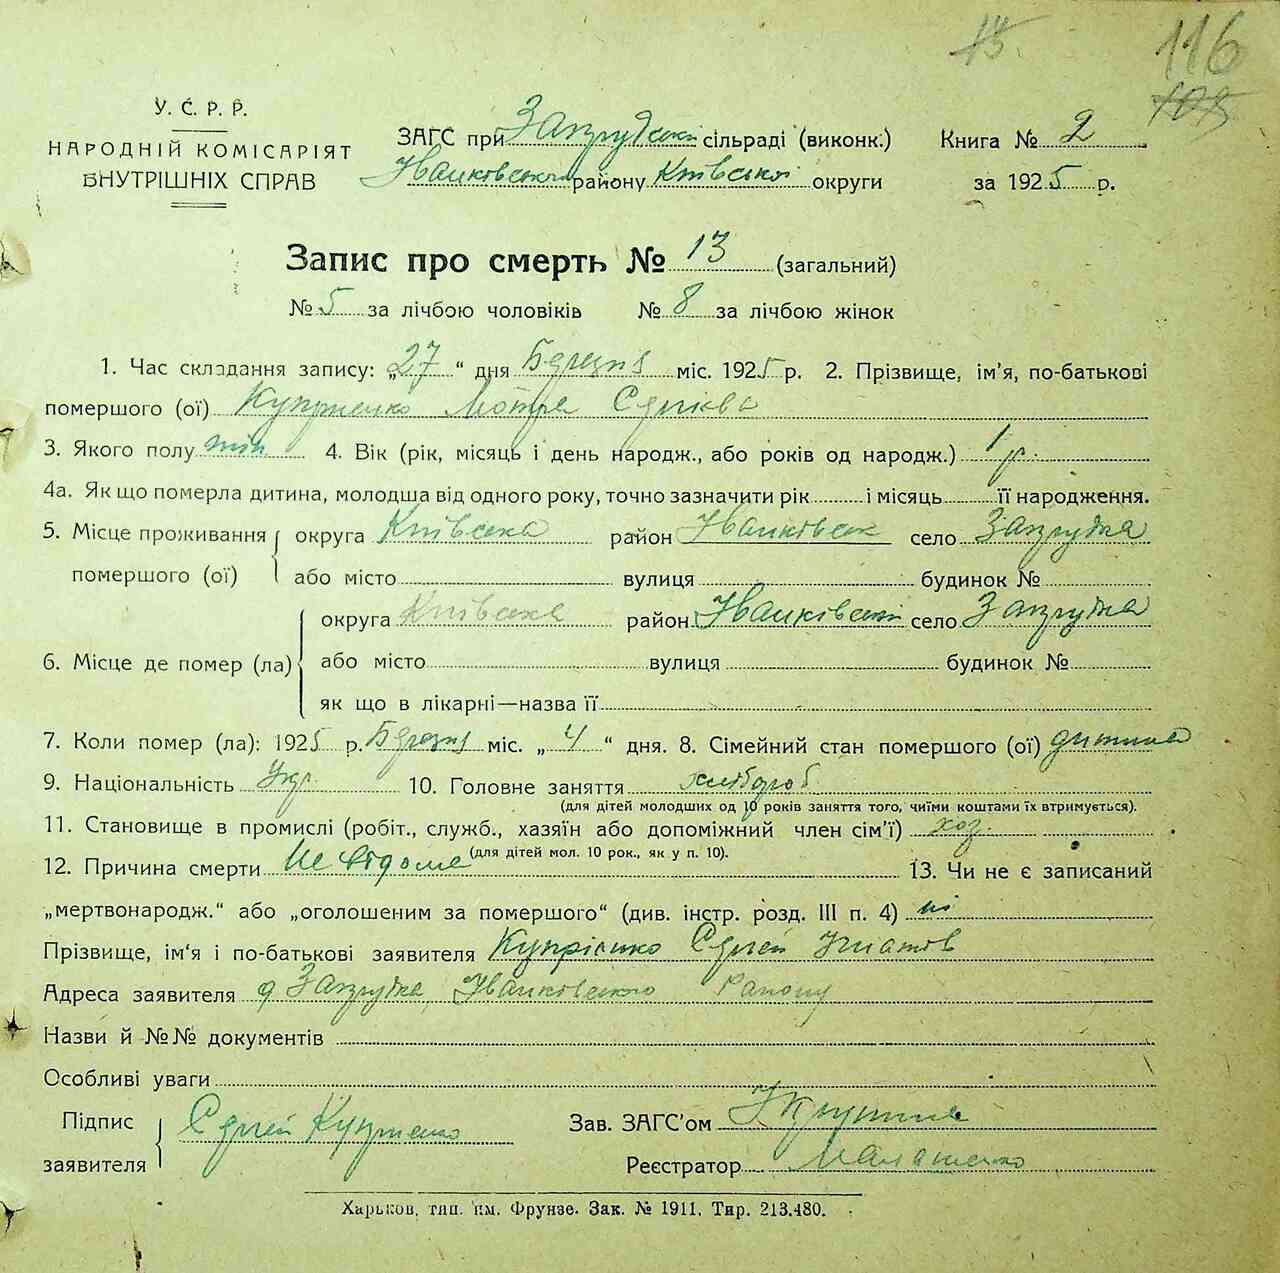 116
У. С. Р. Р.
НАРОДНІЙ КОМІСАРІЯТ
ВНУТРІШНІХ СПРАВ
ЗАГС при сільраді (виконк.)
району Київської округи
Книга № 2
за 1925 р.
Запис про смерть № 13 (загальний)
№ 5 за лічбою чоловіків № 8 за лічбою жінок
1. Час складання запису: „27“ дня Березня міс. 1925 р. 2. Прізвище, ім'я, по-батькові
помершого (ої) Купрієнко Мотря Сергієва
3. Якого полу жін. 4. Вік (рік, місяць і день народж., або років од народж.) 1 р.
4а. Як що померла дитина, молодша від одного року, точно зазначити рік і місяць її народження.
5. Місце проживання округа Київська район село
помершого (ої) або місто вулиця будинок №
округа Київська район село
6. Місце де помер (ла) або місто вулиця будинок №
як що в лікарні—назва її
7. Коли помер (ла): 1925 р. Березня міс. „4“ дня. 8. Сімейний стан помершого (ої) дитина
9. Національність Укр. 10. Головне заняття хлібороб
(для дітей молодших од 10 років заняття того, чиїми коштами їх втримується).
11. Становище в промислі (робіт., служб., хазяїн або допоміжний член сім'ї) хоз.
(для дітей мол. 10 рок., як у п. 10).
12. Причина смерти Не відоме 13. Чи не є записаний
„мертвонародж.“ або „оголошеним за помершого“ (див. інстр. розд. III п. 4) ні
Прізвище, ім'я і по-батькові заявителя Купрієнко Сергей Игнатов
Адреса заявителя Району
Назви й №№ документів
Особливі уваги
Підпис
заявителя Сергей Куприенко
Зав. ЗАГС'ом
Реєстратор
Харьков, тип. им. Фрунзе. Зак. № 1911. Тир. 213.480.